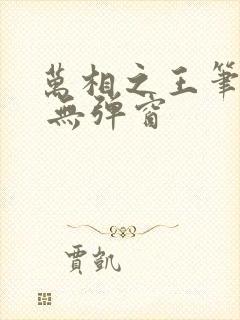 萬相之王筆
無彈窗
賈凱